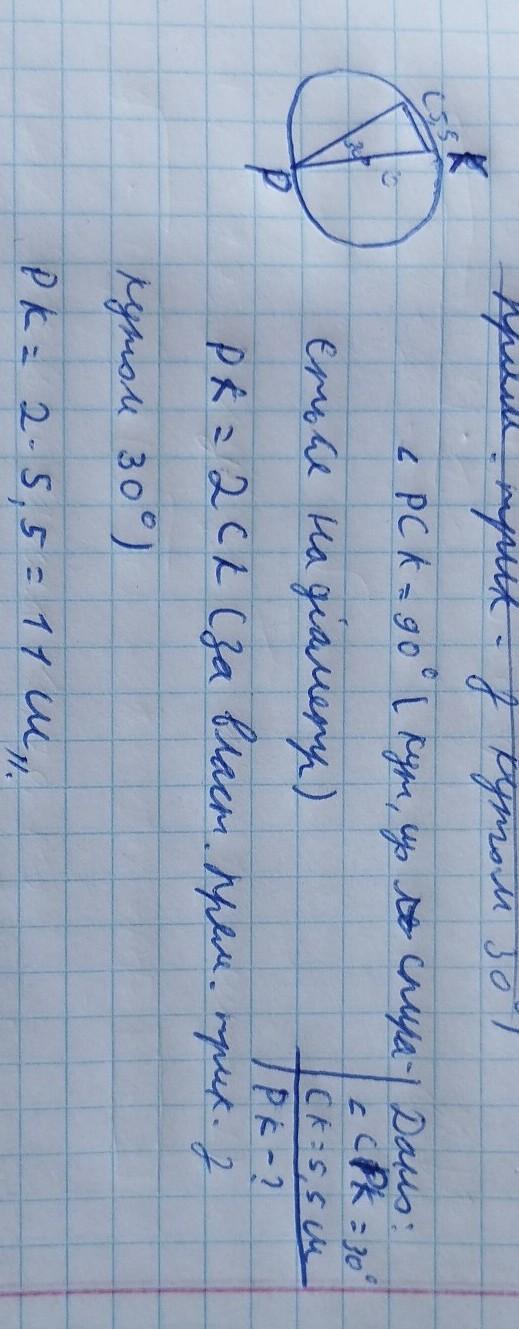 прям. трик. з кутом 30°)
C 5,5 K
30° O
P
∠ PCK = 90° (кут, що спира-
ється на діаметр)
PK = 2 CK (за власт. прям. трик. з
кутом 30°)
PK = 2 · 5,5 = 11 см,,.
Дано:
∠ CPK = 30°
CK = 5,5 см
PK - ?